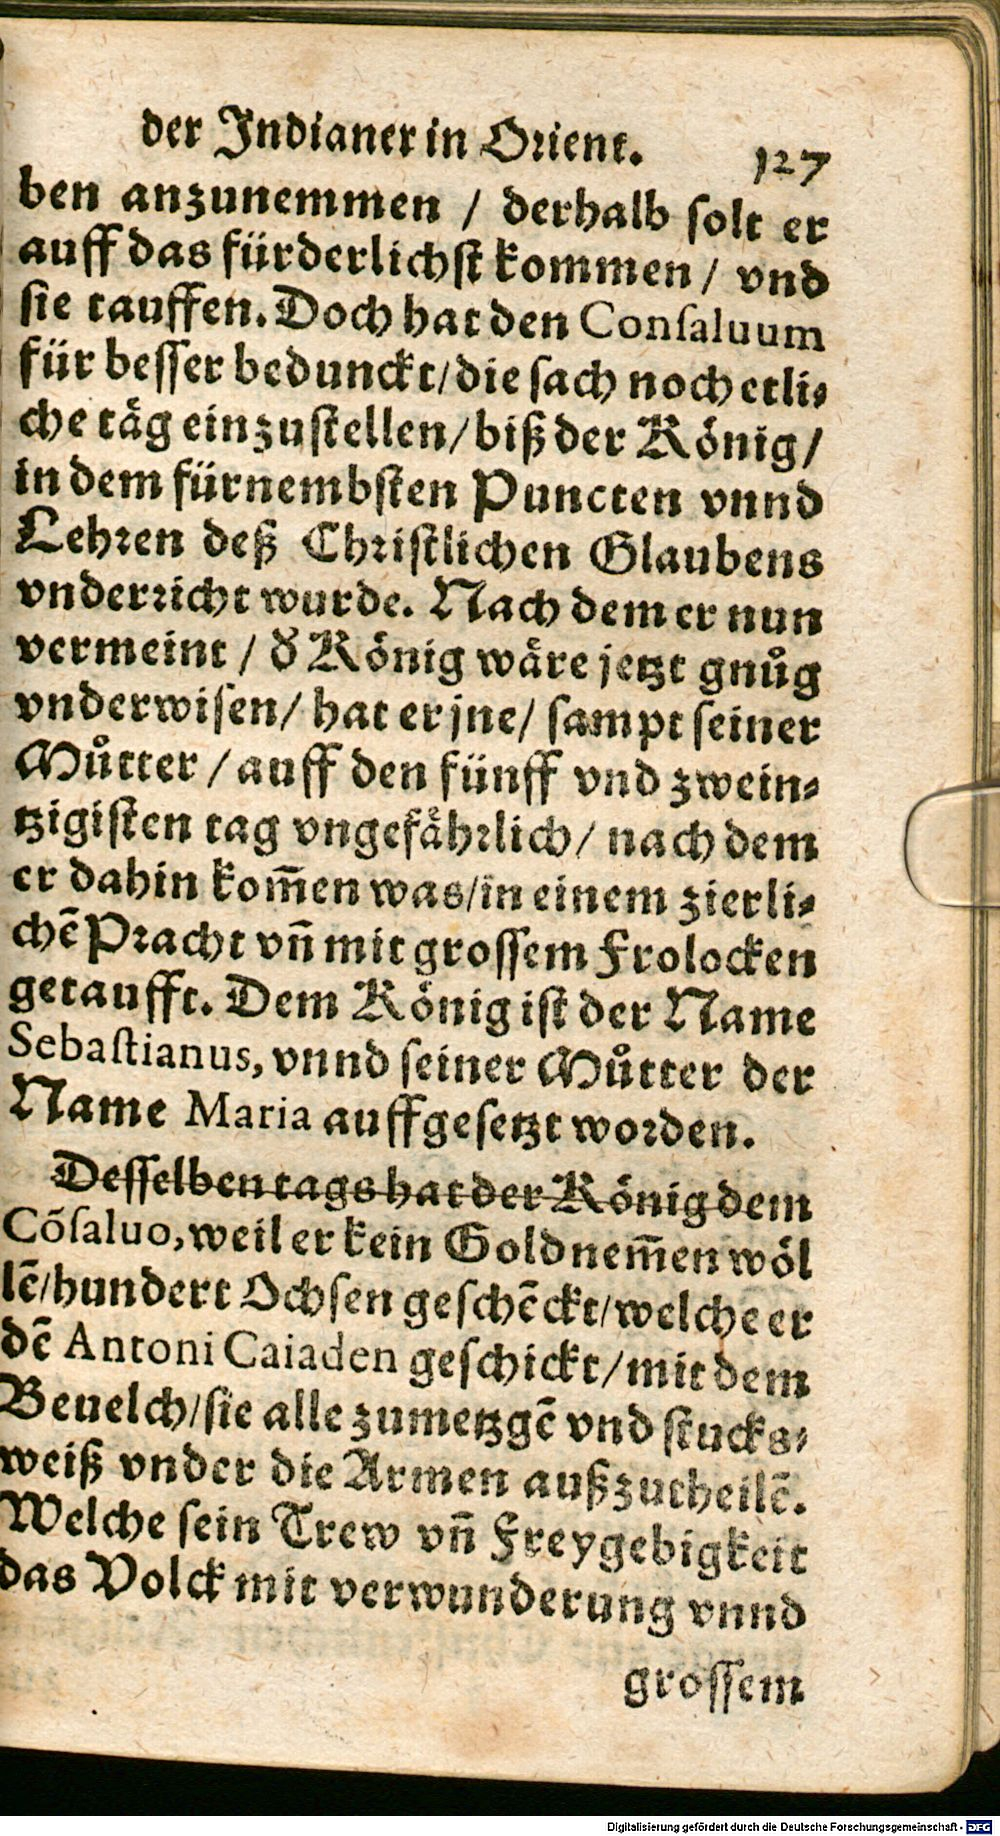 der Indianer in Orient. 127
ben anzunemmen / derhalb ſolt er
auff das fürderlichſt kommen / vnd
ſie tauffen. Doch hat den Conſaluum
für beſſer bedunckt/die ſach noch etli⸗
che täg einzuſtellen/biß der König/
in dem fürnembſten Puncten vnnd
Lehren deß Chriſtlichen Glaubens
vnderricht wurde. Nach dem er nun
vermeint / d̕ König wäre jetzt gnůg
vnderwiſen/ hat er jne/ ſampt ſeiner
Můtter / auff den fünff vnd zwein⸗
tzigiſten tag vngefährlich/ nach dem
er dahin kom̃en was/in einem zierli⸗
chẽ Pracht vñ mit groſſem Frolocken
getaufft. Dem König iſt der Name
Sebaſtianus, vnnd ſeiner Můtter der
Name Maria auffgeſetzt worden.
Deſſelben tags hat der König dem
Cõſaluo, weil er kein Gold nem̃en wöl
lẽ/hundert Ochſen geſchẽckt/welche er
dẽ Antoni Caiaden geſchickt/mit dem
Beuelch/ſie alle zumetzgẽ vnd ſtucks⸗
weiß vnder die Armen außzutheilẽ.
Welche ſein Trew vñ Freygebigkeit
das Volck mit verwunderung vnnd
groſſem
Digitalisierung gefördert durch die Deutsche Forschungsgemeinschaft - DFG